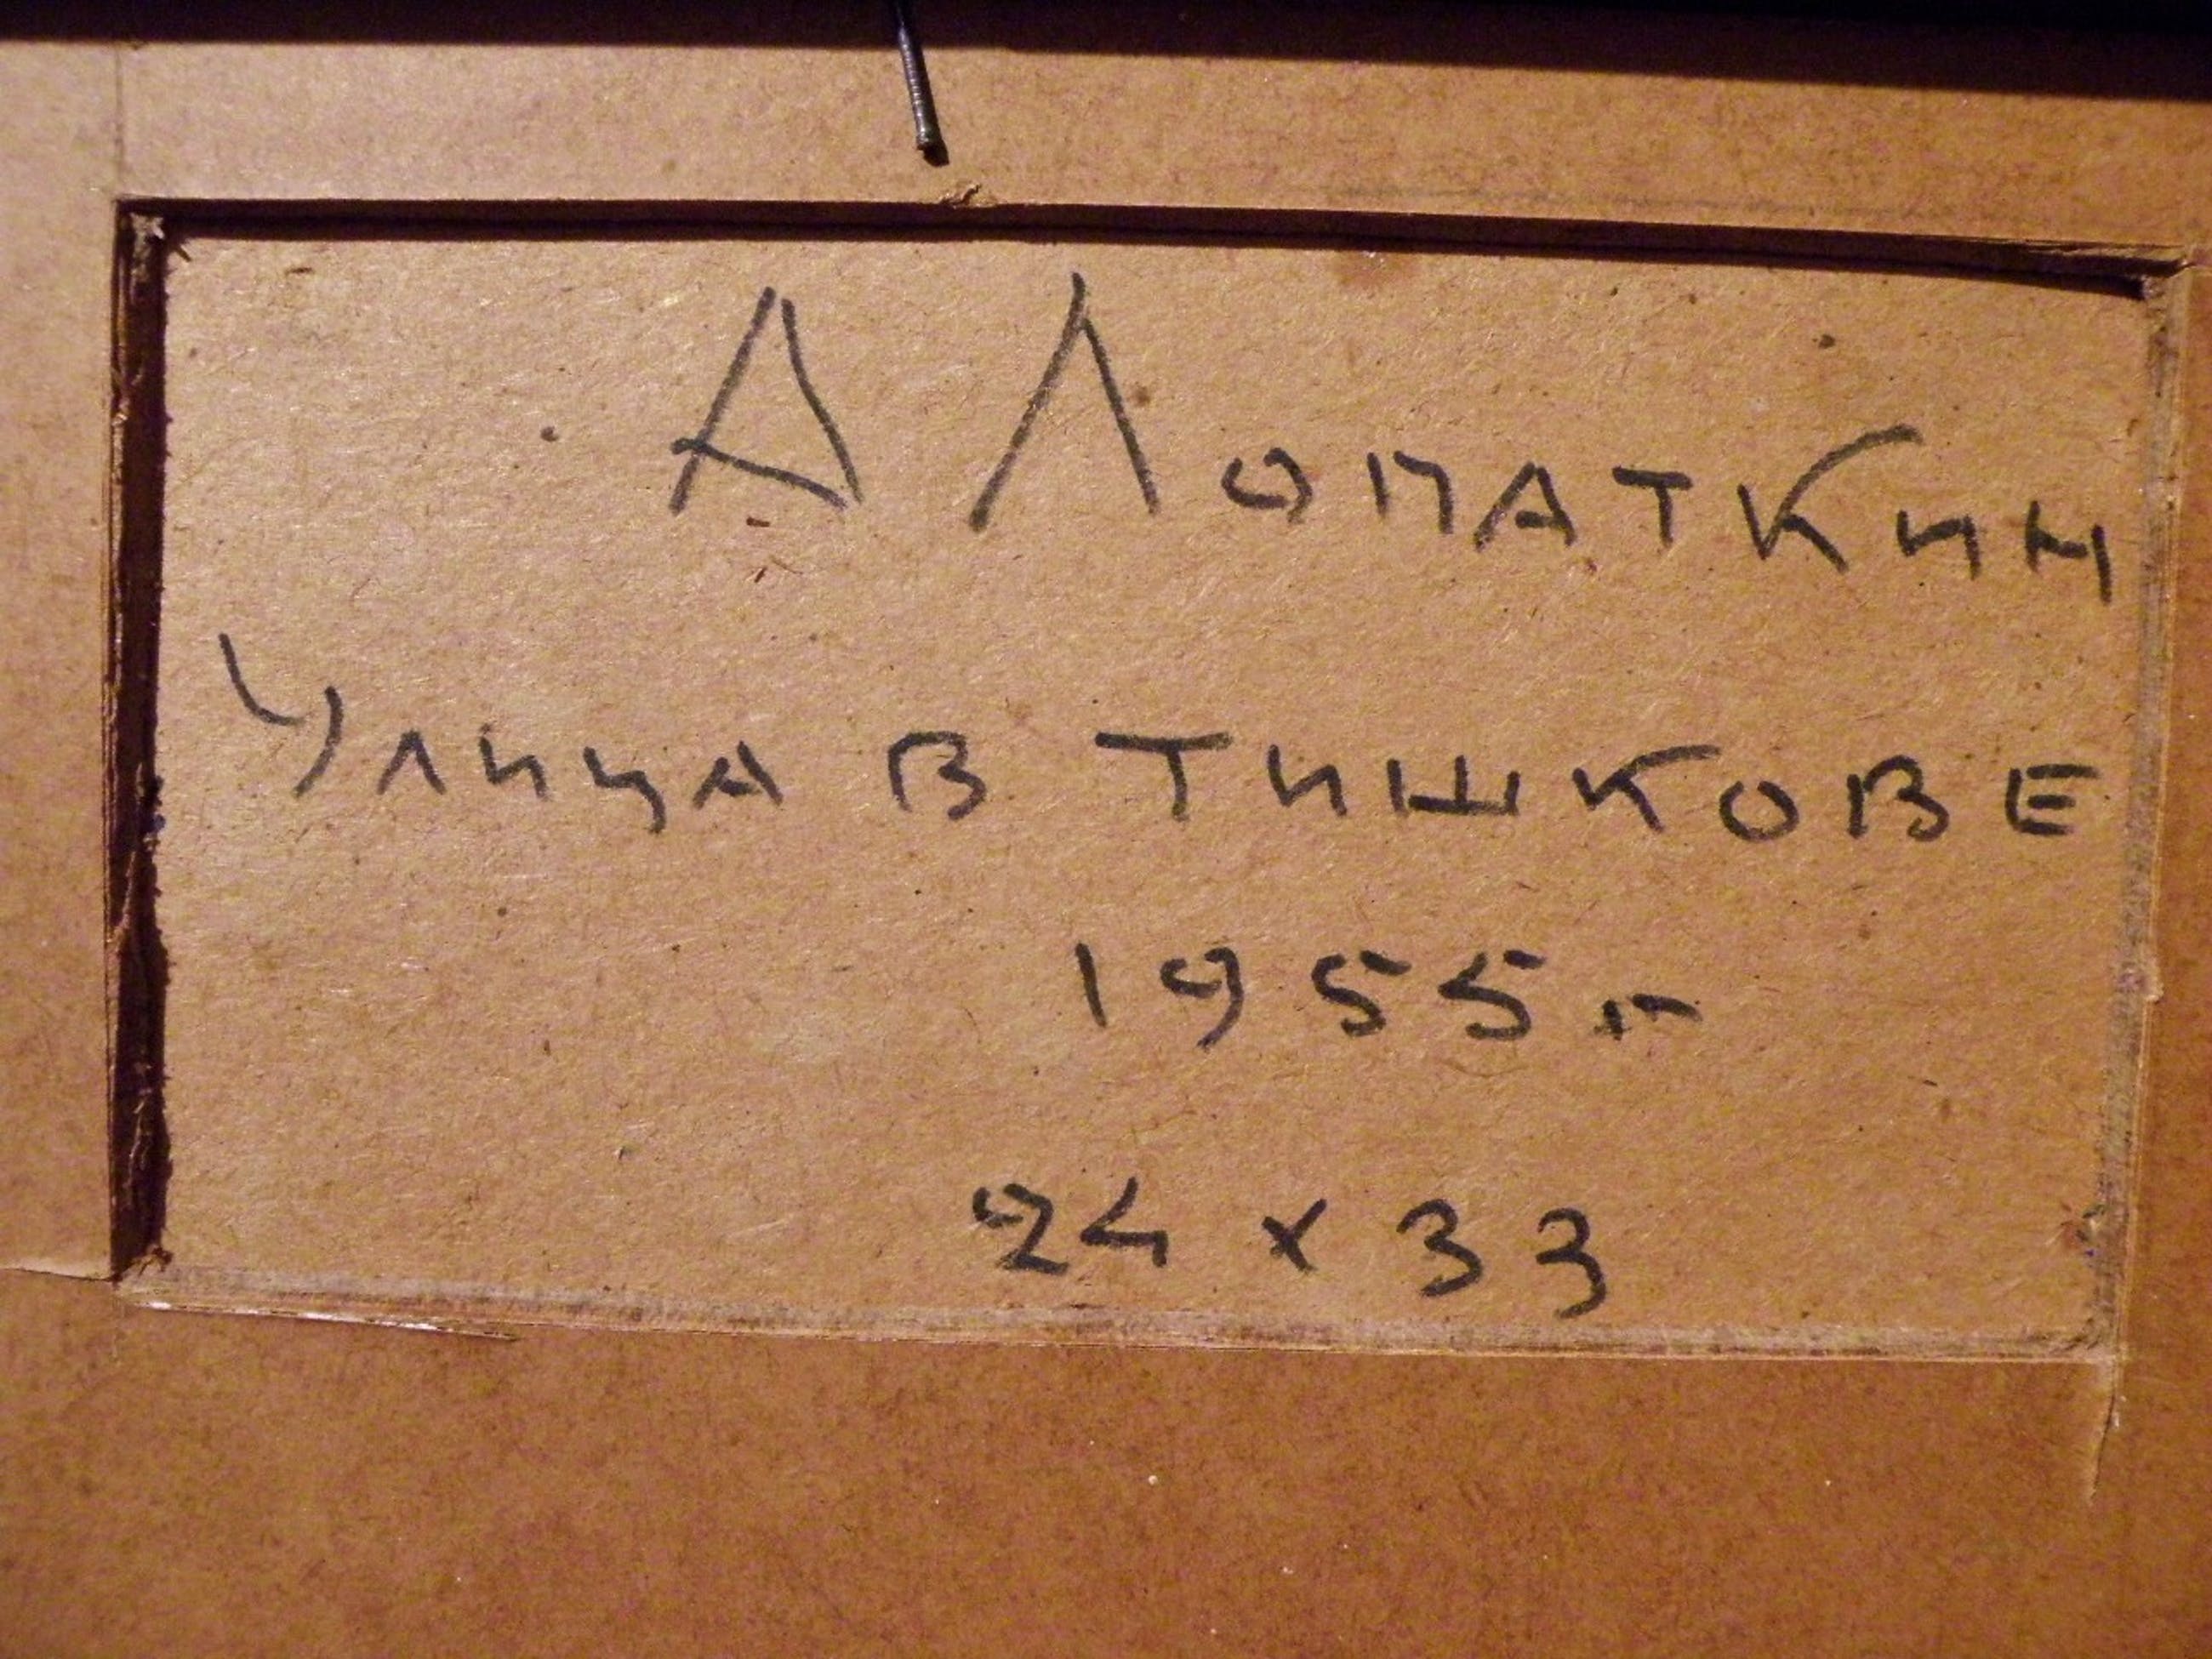 А Лопаткин
Улица в Тишкове
1955 г
24 x 33